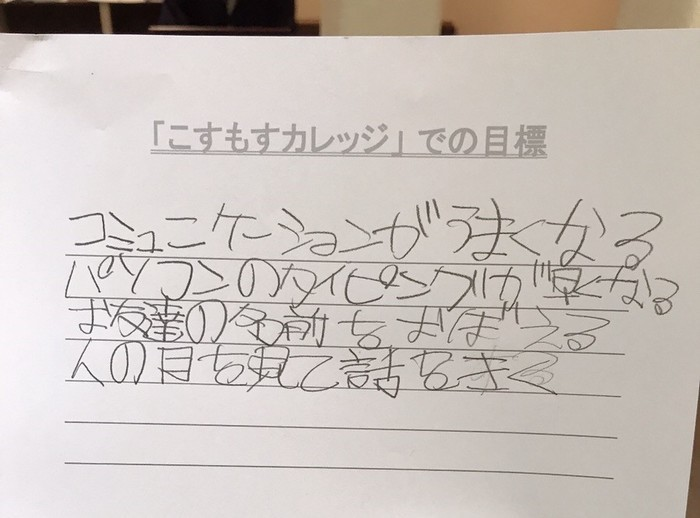 「こすもすカレッジ」での目標
コミュニケーションがうまくなる
パソコンのタイピングが早くなる
お友達の名前をおぼえる
人の目を見て話をきく